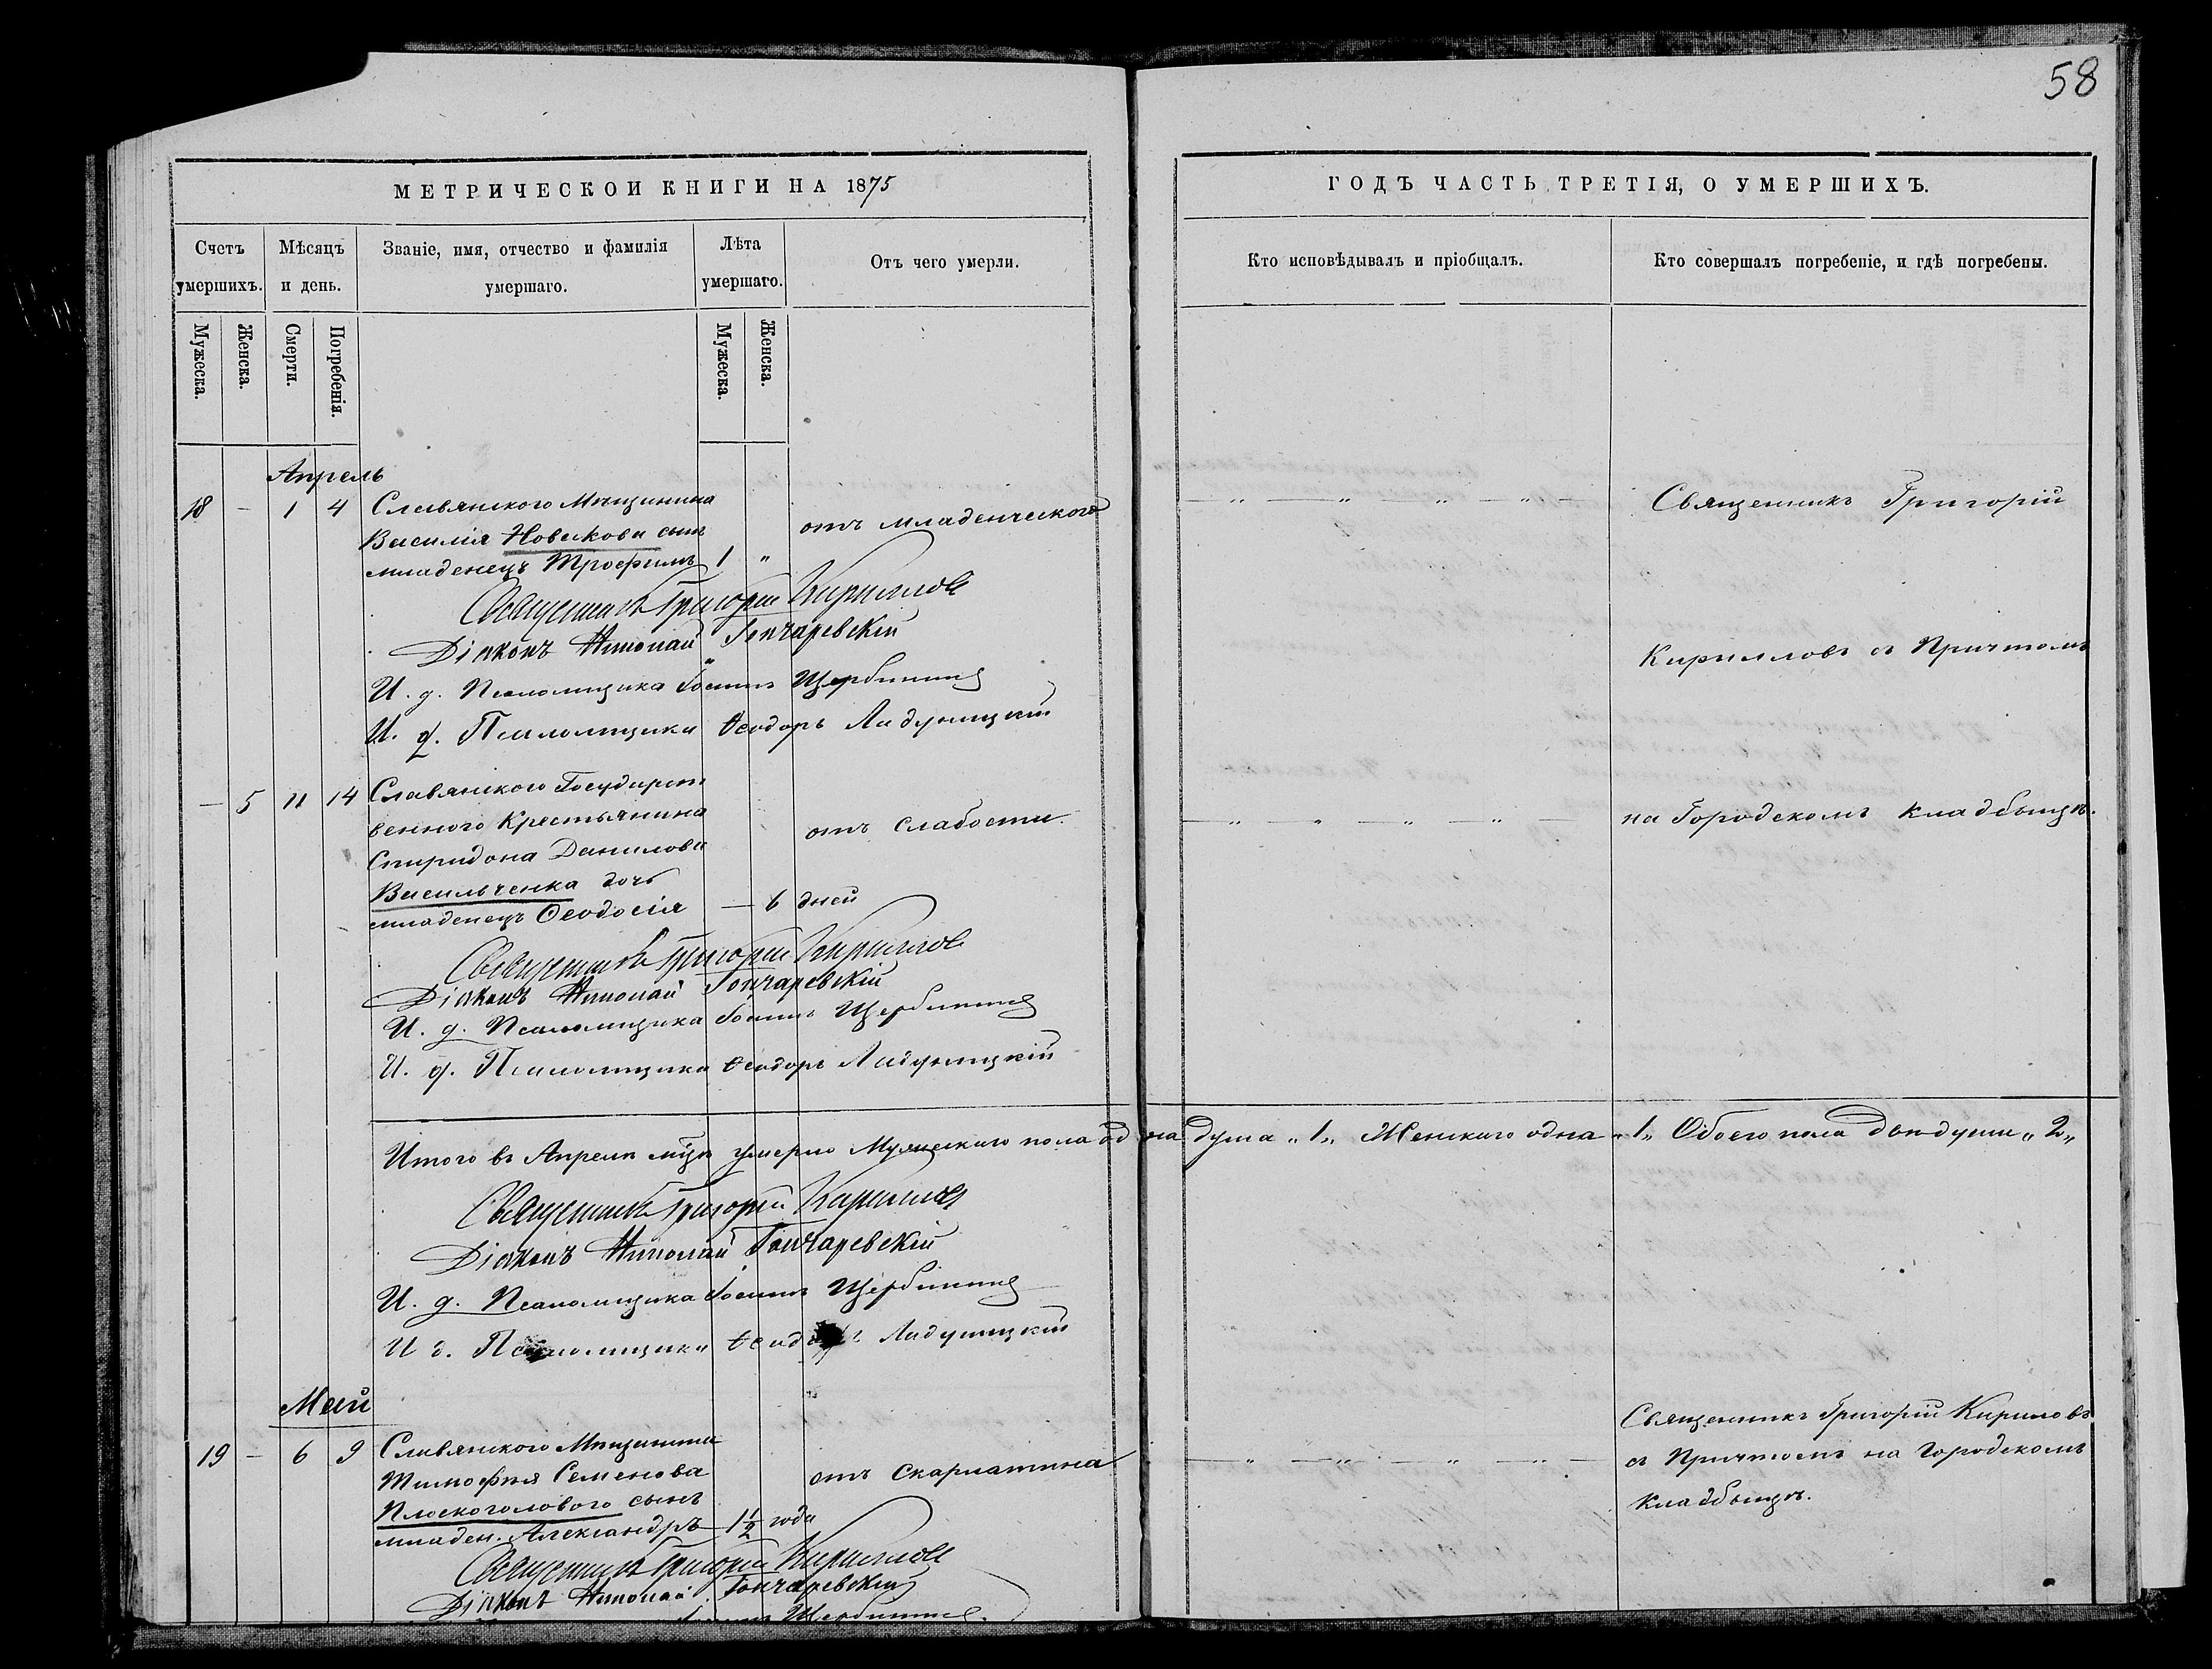 58
МЕТРИЧЕСКОЙ КНИГИ НА 1875
ГОДЪ ЧАСТЬ ТРЕТІЯ, О УМЕРШИХЪ.
Счетъ умершихъ.
Мѣсяцъ и день.
Званіе, имя, отчество и фамилія умершаго.
Лѣта умершаго.
Отъ чего умерли.
Кто исповѣдывалъ и пріобщалъ.
Кто совершалъ погребеніе, и гдѣ погребены.
Мужеска.
Женска.
Смерти.
Погребенія.
Мужеска.
Женска.
Апрель
18 - 1 4 Славянского Мѣщанина
Василія Новикова сынъ отъ младенческого
младенецъ Трофимъ 1 "
Священникъ Григорій
Священникъ Григорій Кирилловъ
Діаконъ Николай Гончаревскій
Кирилловъ съ Причтомъ
И. д. Псаломщика Іоаннъ Щербининъ
И. д. Псаломщика Ѳеодоръ Ладухицкій
— 5 11 14 Славянского Государст
венного Крестьянина отъ слабости
Спиридона Данилова
Васильченка дочь
младенецъ Ѳеодосія — 6 дней
на Городскомъ кладбыщѣ.
Священникъ Григорій Кирилловъ
Діаконъ Николай Гончаревскій
И. д. Псаломщика Іоаннъ Щербининъ
И. д. Псаломщика Ѳеодоръ Ладухицкій
Итого въ Апрелѣ мцѣ умерло Мужескаго пола одна душа „1„ Женскаго одна „1„ Обоего пола двѣ души „2„
Священникъ Григорій Кирилловъ
Діаконъ Николай Гончаревскій
И. д. Псаломщика Іоаннъ Щербининъ
И д. Псаломщика Ѳеодоръ Ладухицкій
Май
19 - 6 9 Славянского Мѣщанина
Тимофѣя Семенова отъ скарлатина
Плоскоголового сынъ
младен. Александръ 1½ года
Священникъ Григорій Кириловъ
съ Причтомъ на Городскомъ
кладбыщѣ.
Священникъ Григорій Кирилловъ
Діаконъ Николай Гончаревскій
Іоаннъ Щербининъ